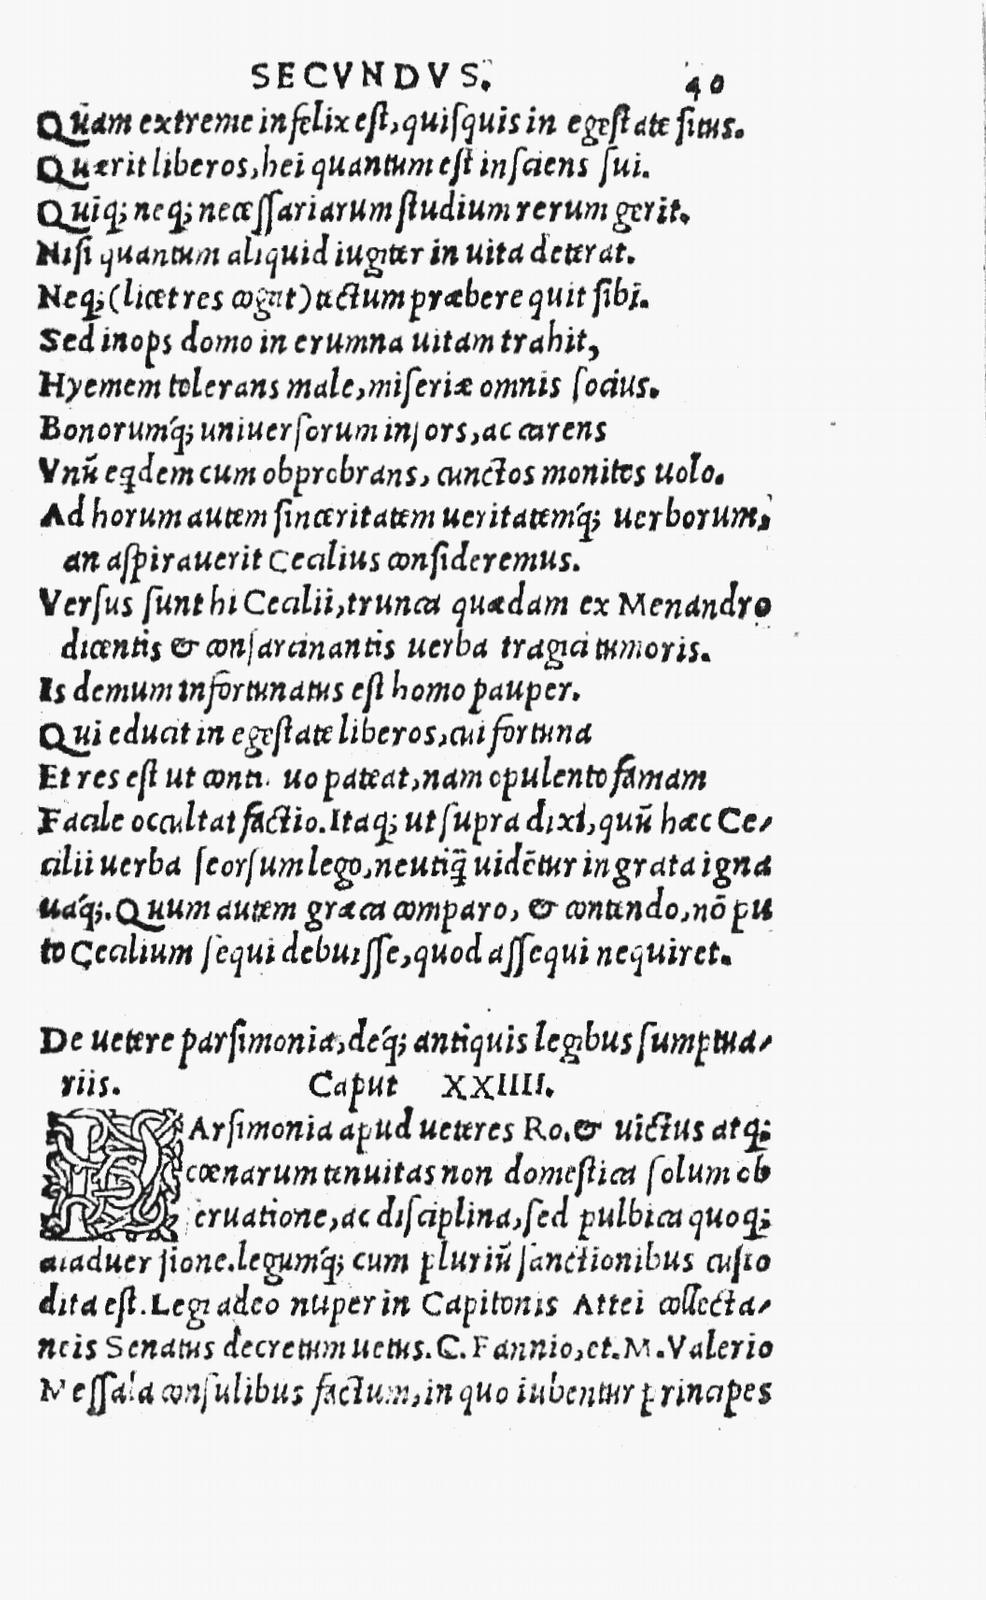 SECVNDVS. 40
Qũam extreme infelix est, quisquis in egestate situs.
Quærit liberos, hei quantum est insciens sui.
Quiq; neq; necessariarum studium rerum gerit.
Nisi quantum aliquid iugiter in uita deterat.
Neq; (licet res cogat) tectum præbere quit sibi.
Sed inops domo in erumna uitam trahit,
Hyemem tolerans male, miseriæ omnis socius.
Bonorumq́; uniuersorum insors, ac carens
Vnũ eqdem cum obprobrans, cunctos monitos uolo.
Ad horum autem sinceritatem ueritatemq́; uerborum,
an aspirauerit Cecilius consideremus.
Versus sunt hi Cecilii, trunca quædam ex Menandro
dicentis & consarcinantis uerba tragici tumoris.
Is demum infortunatus est homo pauper.
Qui educit in egestate liberos, cui fortuna
Et res est ut conti uo pateat, nam opulento famam
Facile occultat factio. Itaq; ut supra dixi, quũ hæc Ce-
cilii uerba seorsum lego, neutiq̃ uidẽtur ingrata igna
uaq́;. Quum autem græca comparo, & contendo, nõ pu
to Cecilium sequi debuisse, quod assequi nequiret.
De uetere parsimonia, deq́; antiquis legibus sumptua-
riis. Caput XXIIII.
PArsimonia apud ueteres Ro. & uictus atq;
cœnarum tenuitas non domestica solum ob
eruatione, ac disciplina, sed pulbica quoq;
aiaduersione. legumq́; cum pluriũ sanctionibus custo
dita est. Legi adeo nuper in Capitonis Attei collecta-
neis Senatus decretum uetus. C. Fannio, et. M. Valerio
Messala consulibus factum, in quo iubentur principes